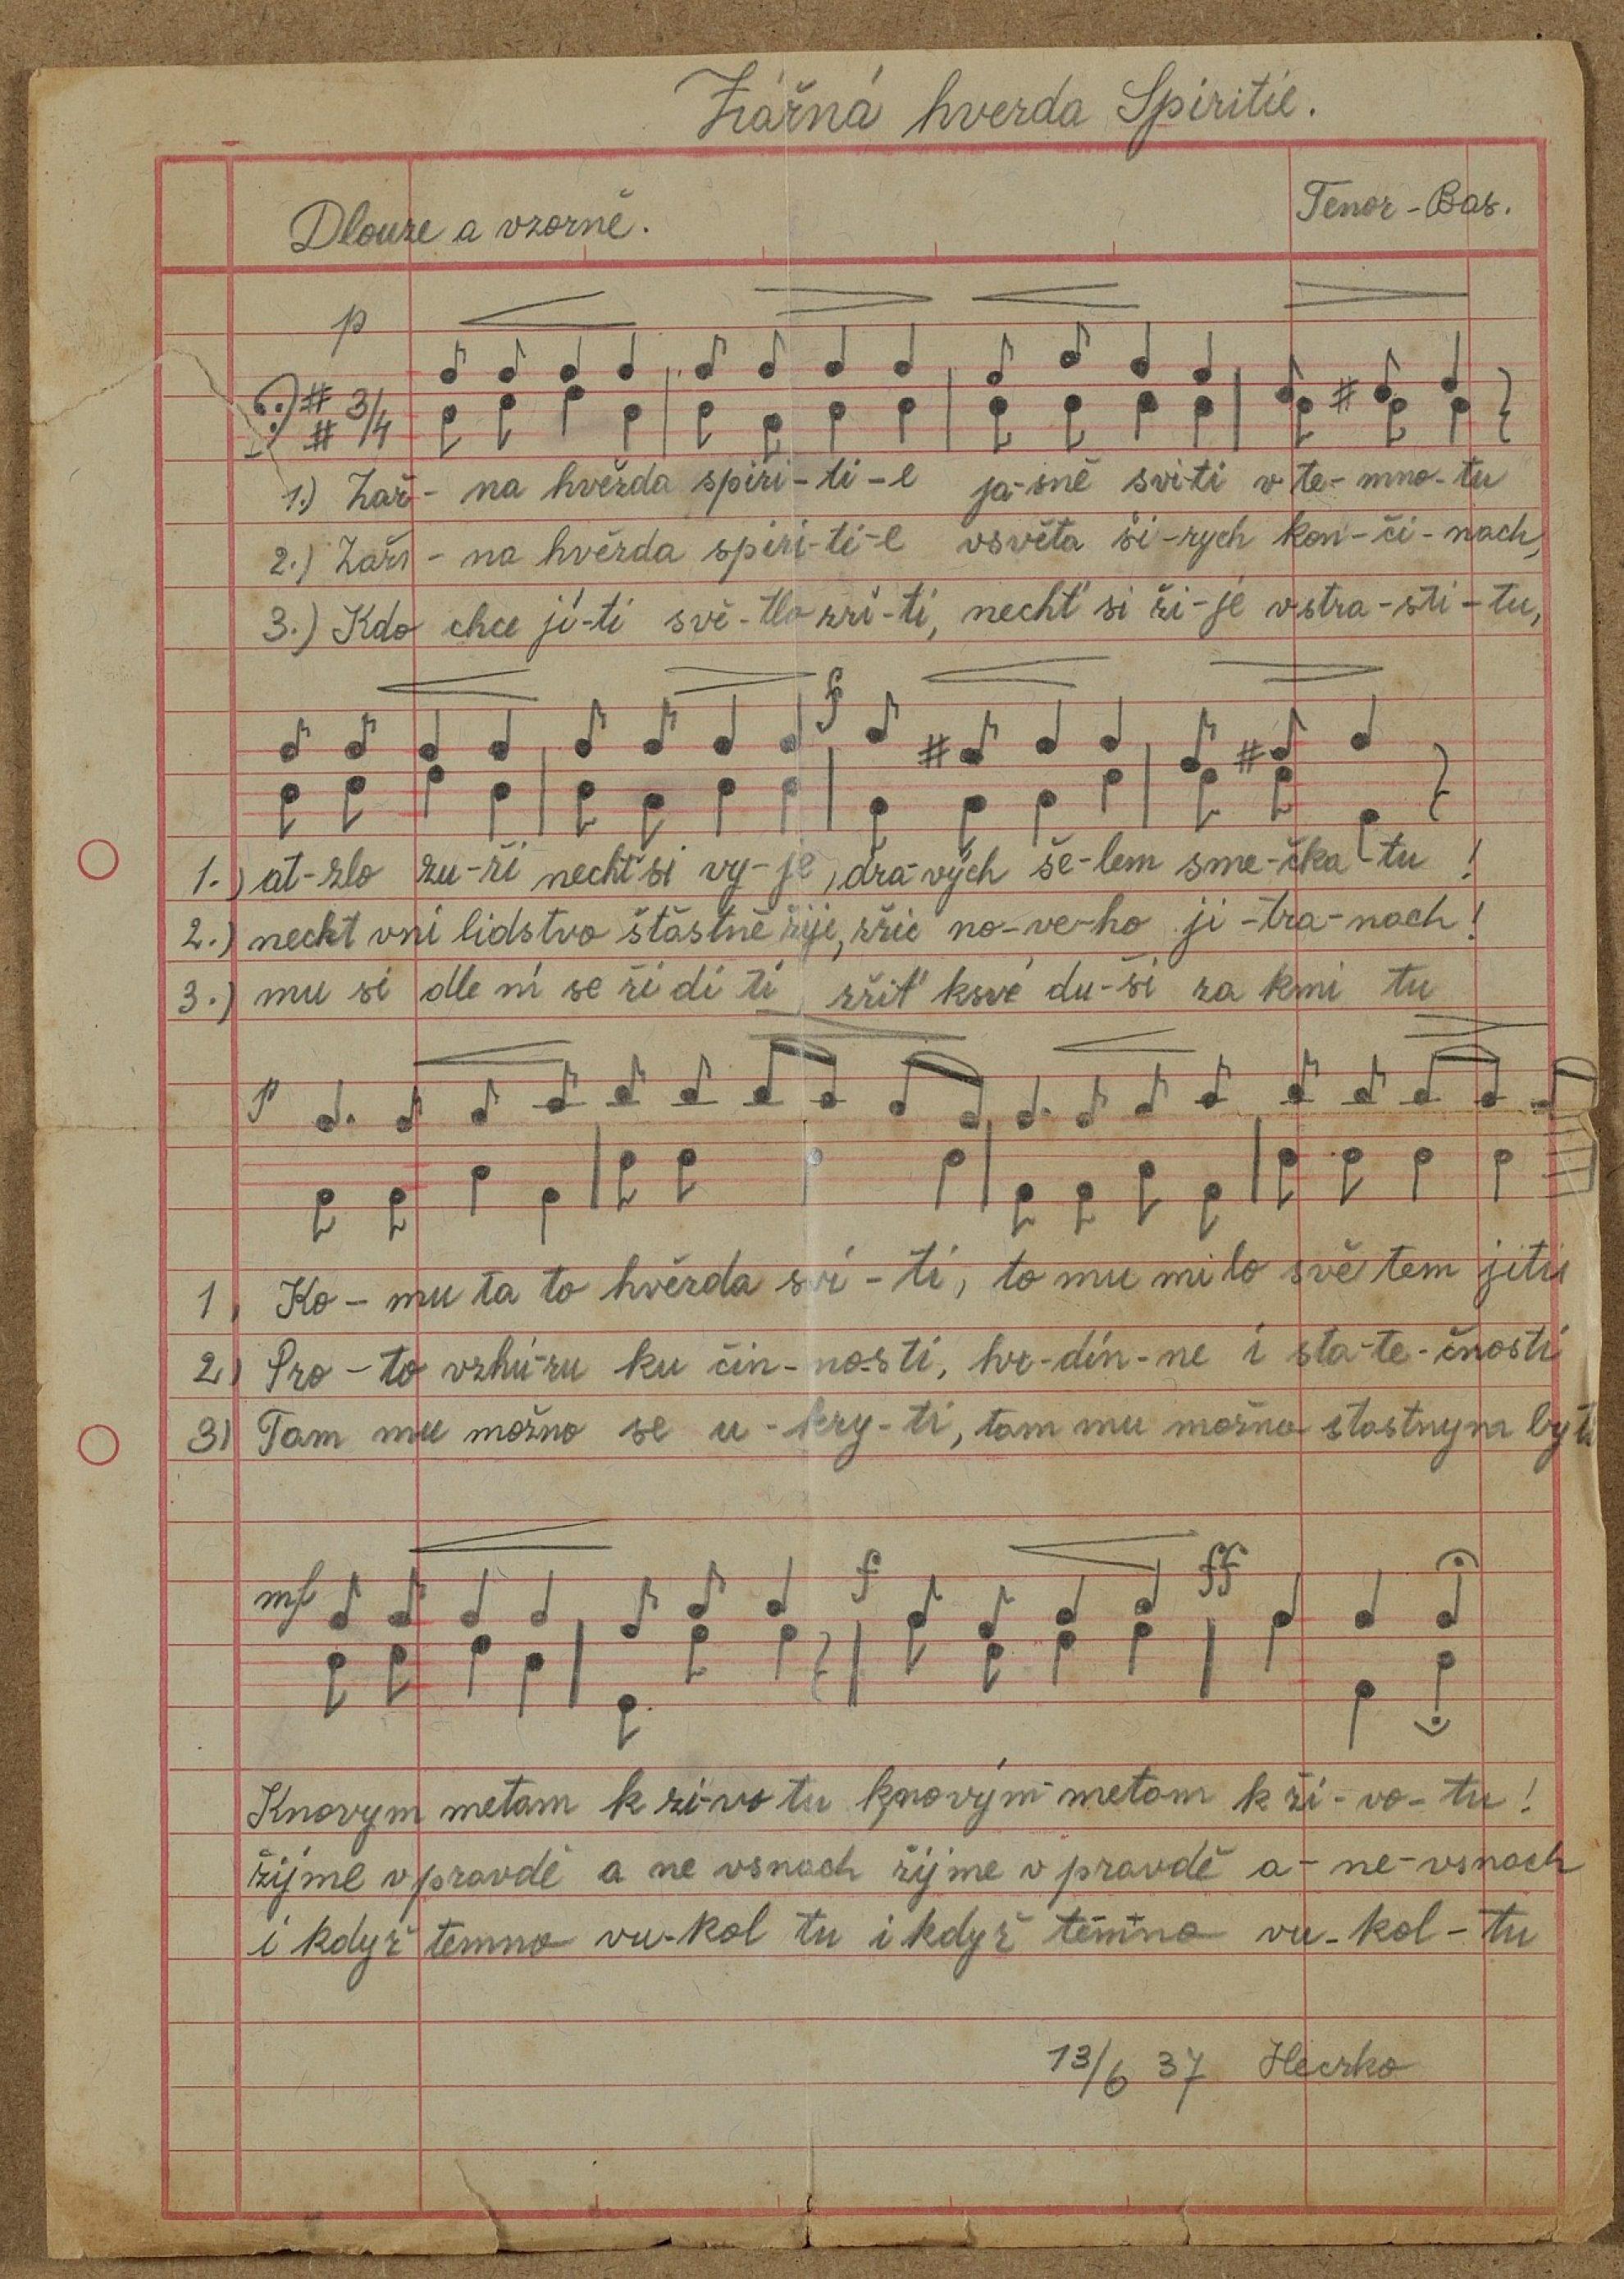 Zářná hverda Spiritie.
Dlouze a vzorně.
Tenor - Bas.
p
3/4
1.) Zář - na hvězda spiri - ti - e ja - sně svi - ti v te - mno - tu
2.) Záři - na hvězda spiri - ti - e vsvěta ši - rych kon - či - nach,
3.) Kdo chce jí - ti svě - tlo zří - ti, nechť si ži - je v stra - sti - tu,
f
1.) at - zlo zu - ři nechť si vy - je, dra - vých še - lem sme - čka - tu !
2.) necht vní lidstvo šťastně žije, zřic no - ve - ho ji - tra - nach !
3.) mu si dle ní se ři di ti zřiť ksvé du - ši za kmi tu
p
1, Ko - mu ta to hvězda sví - tí, to mu mi lo světem jiti
2) Pro - to vzhů - ru ku čin - no - sti, hr - din - ne i sta - te - čnosti
3) Tam mu možno se u - kry - ti, tam mu možno stastnym byti
mf f ff
Knovym metam k zi - vo tu knovým metam k ži - vo - tu !
žijme v pravdě a ne vsnach žijme v pravdě a - ne - vsnach
i když temno vu - kol tu i když temno vu - kol - tu
13/6 37 Heczko